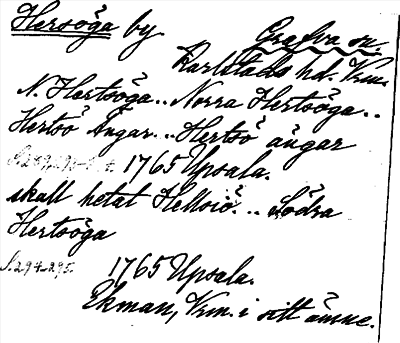 Hersöga by Grafva sn.
Karlstads hd. Vrm.
N. Hertsöga.. Norra Hertsöga..
Hertsö Ängar... Hertsö ängar
1765 Upsala.
skall hetat Hellsiö... Södra
Hertsöga
S. 294-295. 1765 Upsala.
Ekman, Vrm. i sitt ämne.